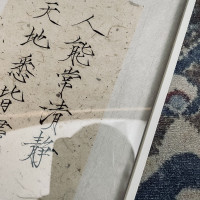 人能常清靜
天地悉皆